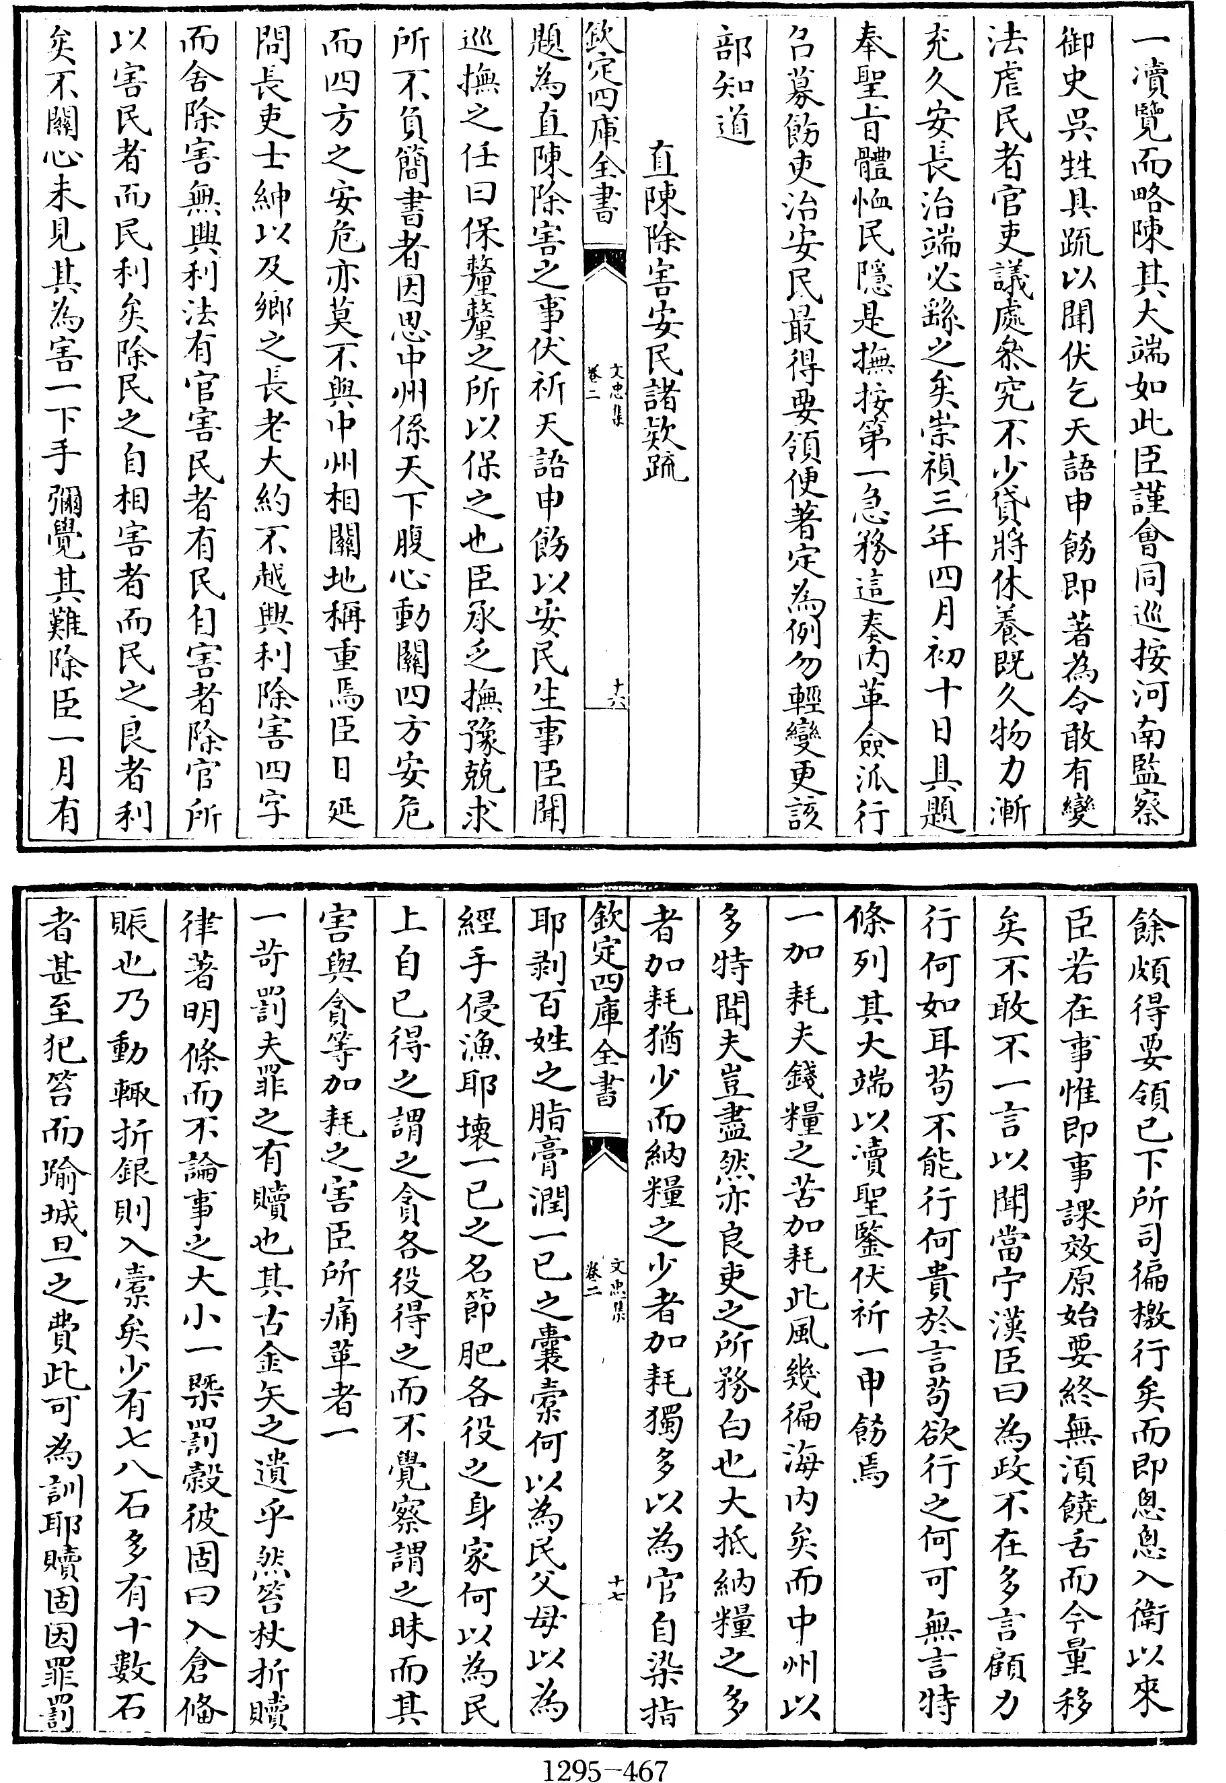 一瀆覽而略陳其大端如此臣謹會同巡按河南監察
御史吳甡具疏以聞伏乞天語申飭即著為令敢有變
法虐民者官吏議處叅究不少貸將休養既久物力漸
充久安長治端必繇之矣崇禎三年四月初十日具題
奉聖旨體恤民隱是撫按第一急務這奏內革僉派行
召募飭吏治安民最得要領便著定為例勿輕變更該
部知道
直陳除害安民諸欵疏
欽定四庫全書
文忠集
卷二
十六
題為直陳除害之事伏祈天語申飭以安民生事臣聞
巡撫之任曰保釐釐之所以保之也臣承乏撫豫兢求
所不負簡書者因思中州係天下腹心動關四方安危
而四方之安危亦莫不與中州相關地稱重焉臣日延
問長吏士紳以及鄉之長老大約不越興利除害四字
而舍除害無興利法有官害民者有民自害者除官所
以害民者而民利矣除民之自相害者而民之良者利
矣不關心未見其為害一下手彌覺其難除臣一月有
餘頗得要領已下所司徧檄行矣而即恩恩入衛以來
臣若在事惟即事課效原始要終無湏饒舌而今量移
矣不敢不一言以聞當宁漢臣曰為政不在多言顧力
行何如耳苟不能行何貴於言苟欲行之何可無言特
條列其大端以瀆聖鑒伏祈一申飭焉
一加耗夫錢糧之苦加耗此風幾徧海内矣而中州以
多特聞夫豈盡然亦良吏之所務白也大抵納糧之多
者加耗猶少而納糧之少者加耗獨多以為官自染指
欽定四庫全書
文忠集
卷二
十七
耶剥百姓之脂膏潤一已之囊槖何以為民父母以為
經手侵漁耶壊一已之名節肥各役之身家何以為民
上自已得之謂之貪各役得之而不覺察謂之昧而其
害與貪等加耗之害臣所痛革者一
一苛罰夫罪之有贖也其古金矢之遺乎然笞杖折贖
律著明條而不論事之大小一槩罰榖彼固曰入倉俻
賑也乃動輙折銀則入槖矣少有七八石多有十數石
者甚至犯笞而踰城旦之費此可為訓耶贖固因罪罰
1295-467